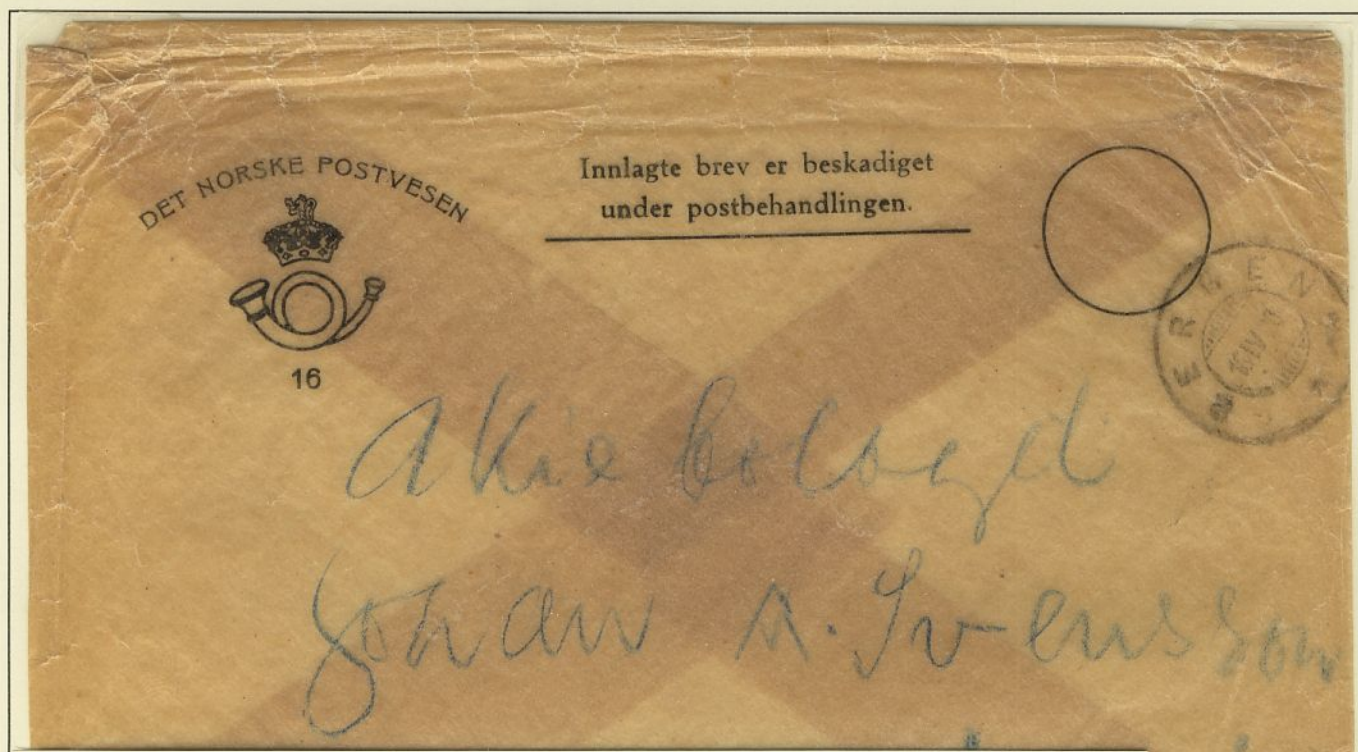 DET NORSKE POSTVESEN
16
Innlagte brev er beskadiget
under postbehandlingen.
BERGEN
Johan A. Svensson